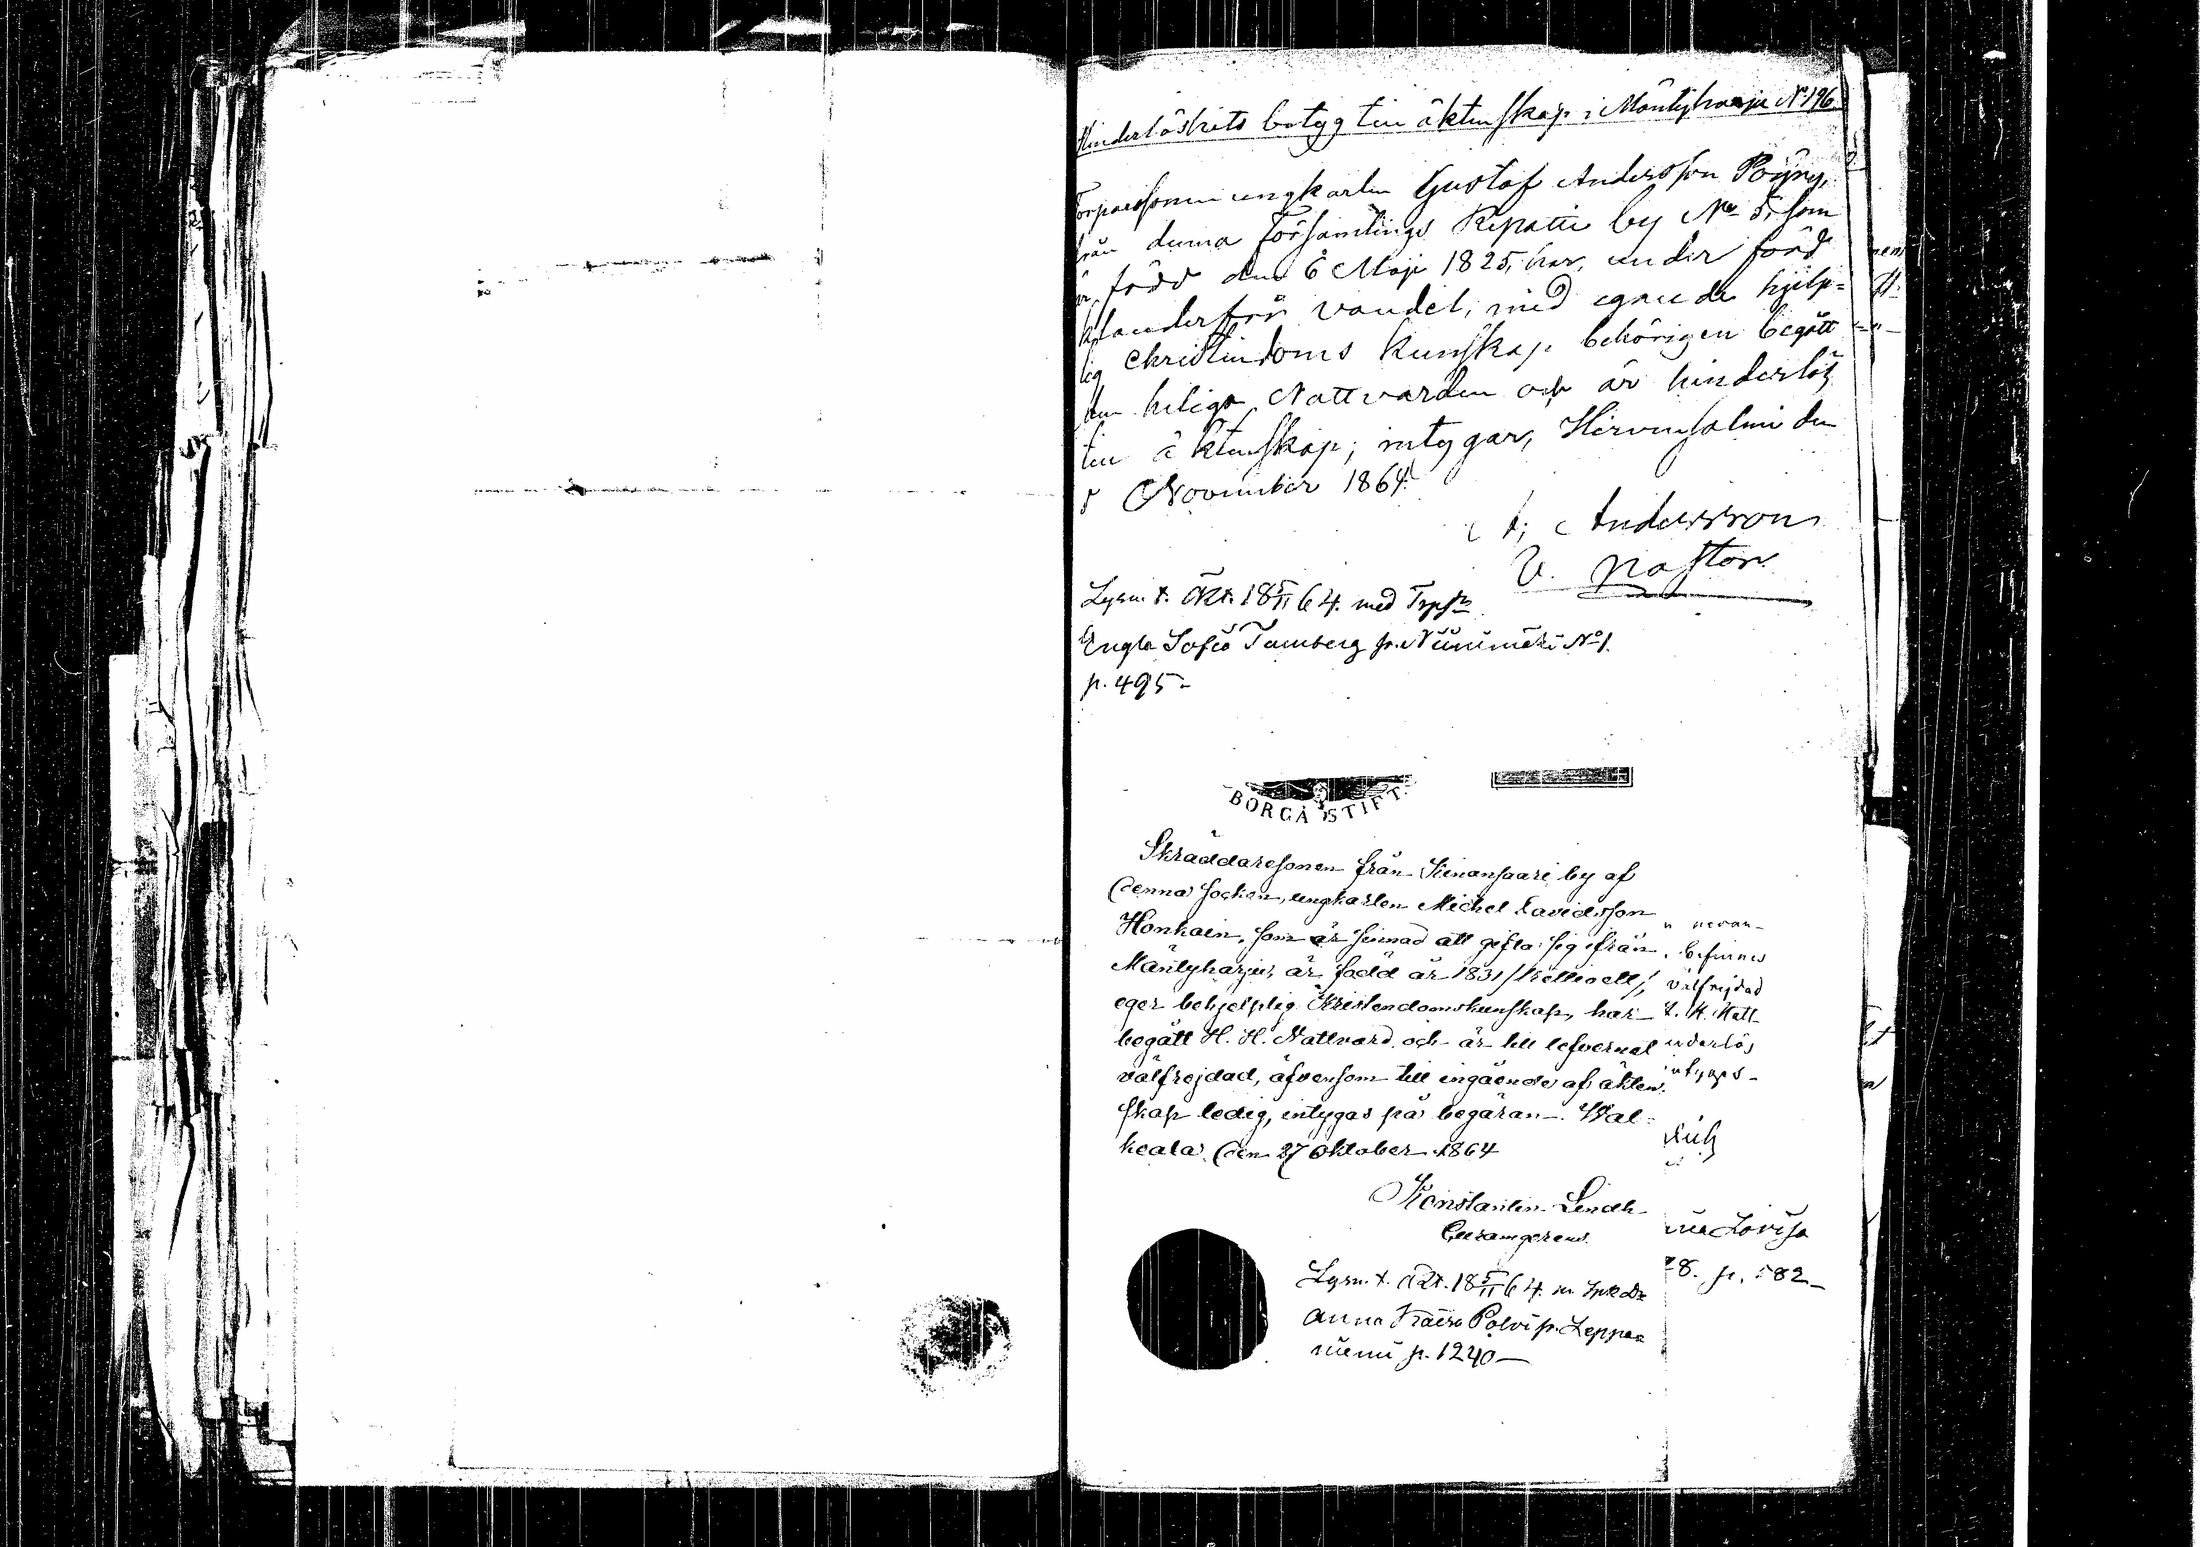 Hinderlöshets betyg till äktenskap i Mäntyharju N:196
Torparesonen ungkarlen Gustaf Andersson Pöyry,
från denna Församlings Ripatti by No 5, som
är född den 6 Maji 1825, har, under förd
klanderfri vandel, med egande hjelp-
lig christendoms kunskap behörigen begått
den heliga Nattvarden och är hinderlös
till äktenskap; intygar, Hirvensalmi den
November 1864
A. Andersson
V. Pastor
Lysn. t. Äkt. 18 5/11 64. med Trps dr
Engla Sofia Tamberg fr. Niinimäki No 1.
p. 495 -
BORGÅ STIFT.
Skräddaresonen från Kinansaari by af
denna socken, ungkarlen Michel Davidsson
Honkain, som är sinnad att gifta sig ifrån
Mäntyharju, är född år 1831
eger behjelplig Kristendomskunskap, har
begått H. H. Nattvard och är till lefvernet
välfrejdad, äfvensom till ingående af äkten-
skap ledig, intygas på begäran. Wal-
keala den 27 Oktober 1864
Konstantin Lindh
Lysn. t. Äkt. 18 5/11 64. m.
Anna Polvi fr. Leppä-
niemi p. 1240 -
befinnes
välfrejdad
H. Natt-
nderlös
intygas -
Lovisa
8. p. 582 -